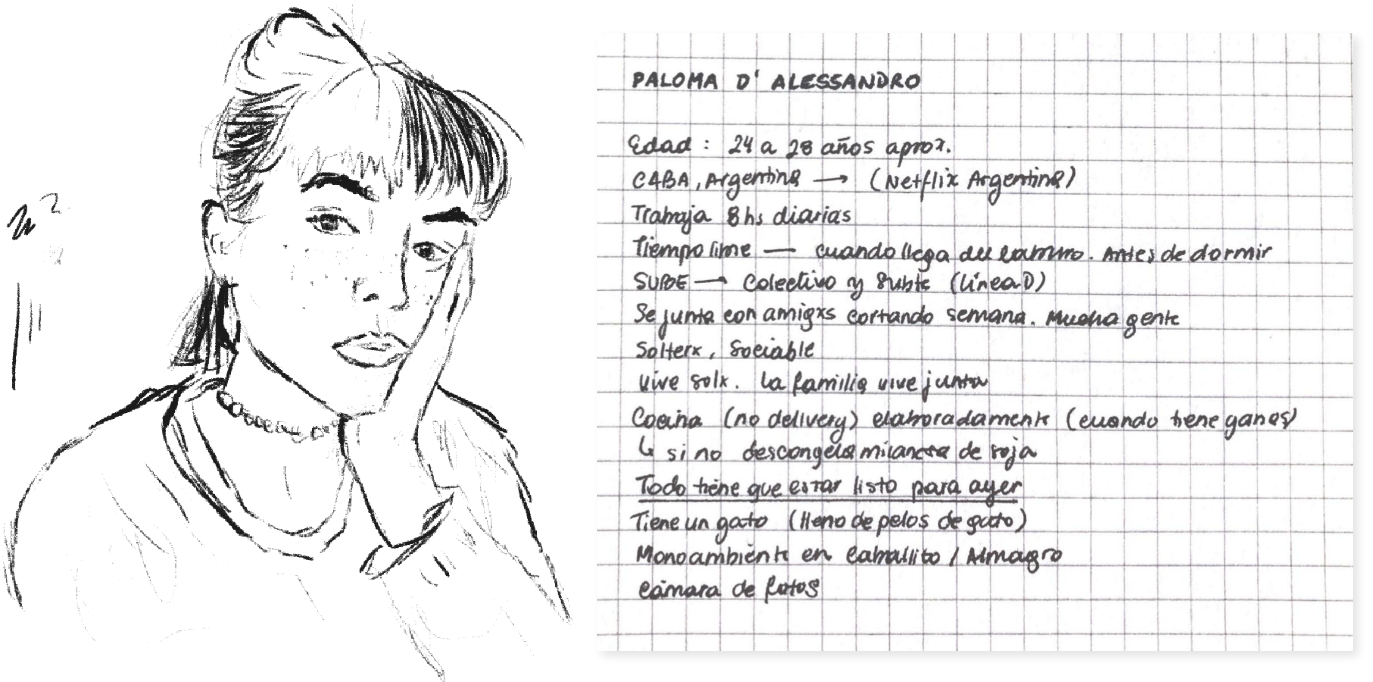 PALOMA D' ALESSANDRO
Edad: 24 a 28 años aprox.
CABA, Argentina → (Netflix Argentina)
Trabaja 8hs diarias
Tiempo — cuando llega del. Antes de dormir
SUBE → Colectivo y Subte (línea D)
Se junta con amigxs cortando semana. Mucha gente
Solterx, Sociable
Vive solx. La familia vive junta
Cocina (no delivery) elaboradamente (cuando tiene ganas)
↳ si no descongela milanesa de soja
Todo tiene que estar listo para ayer
Tiene un gato (lleno de pelos de gato)
Monoambiente en Caballito / Almagro
Cámara de fotos